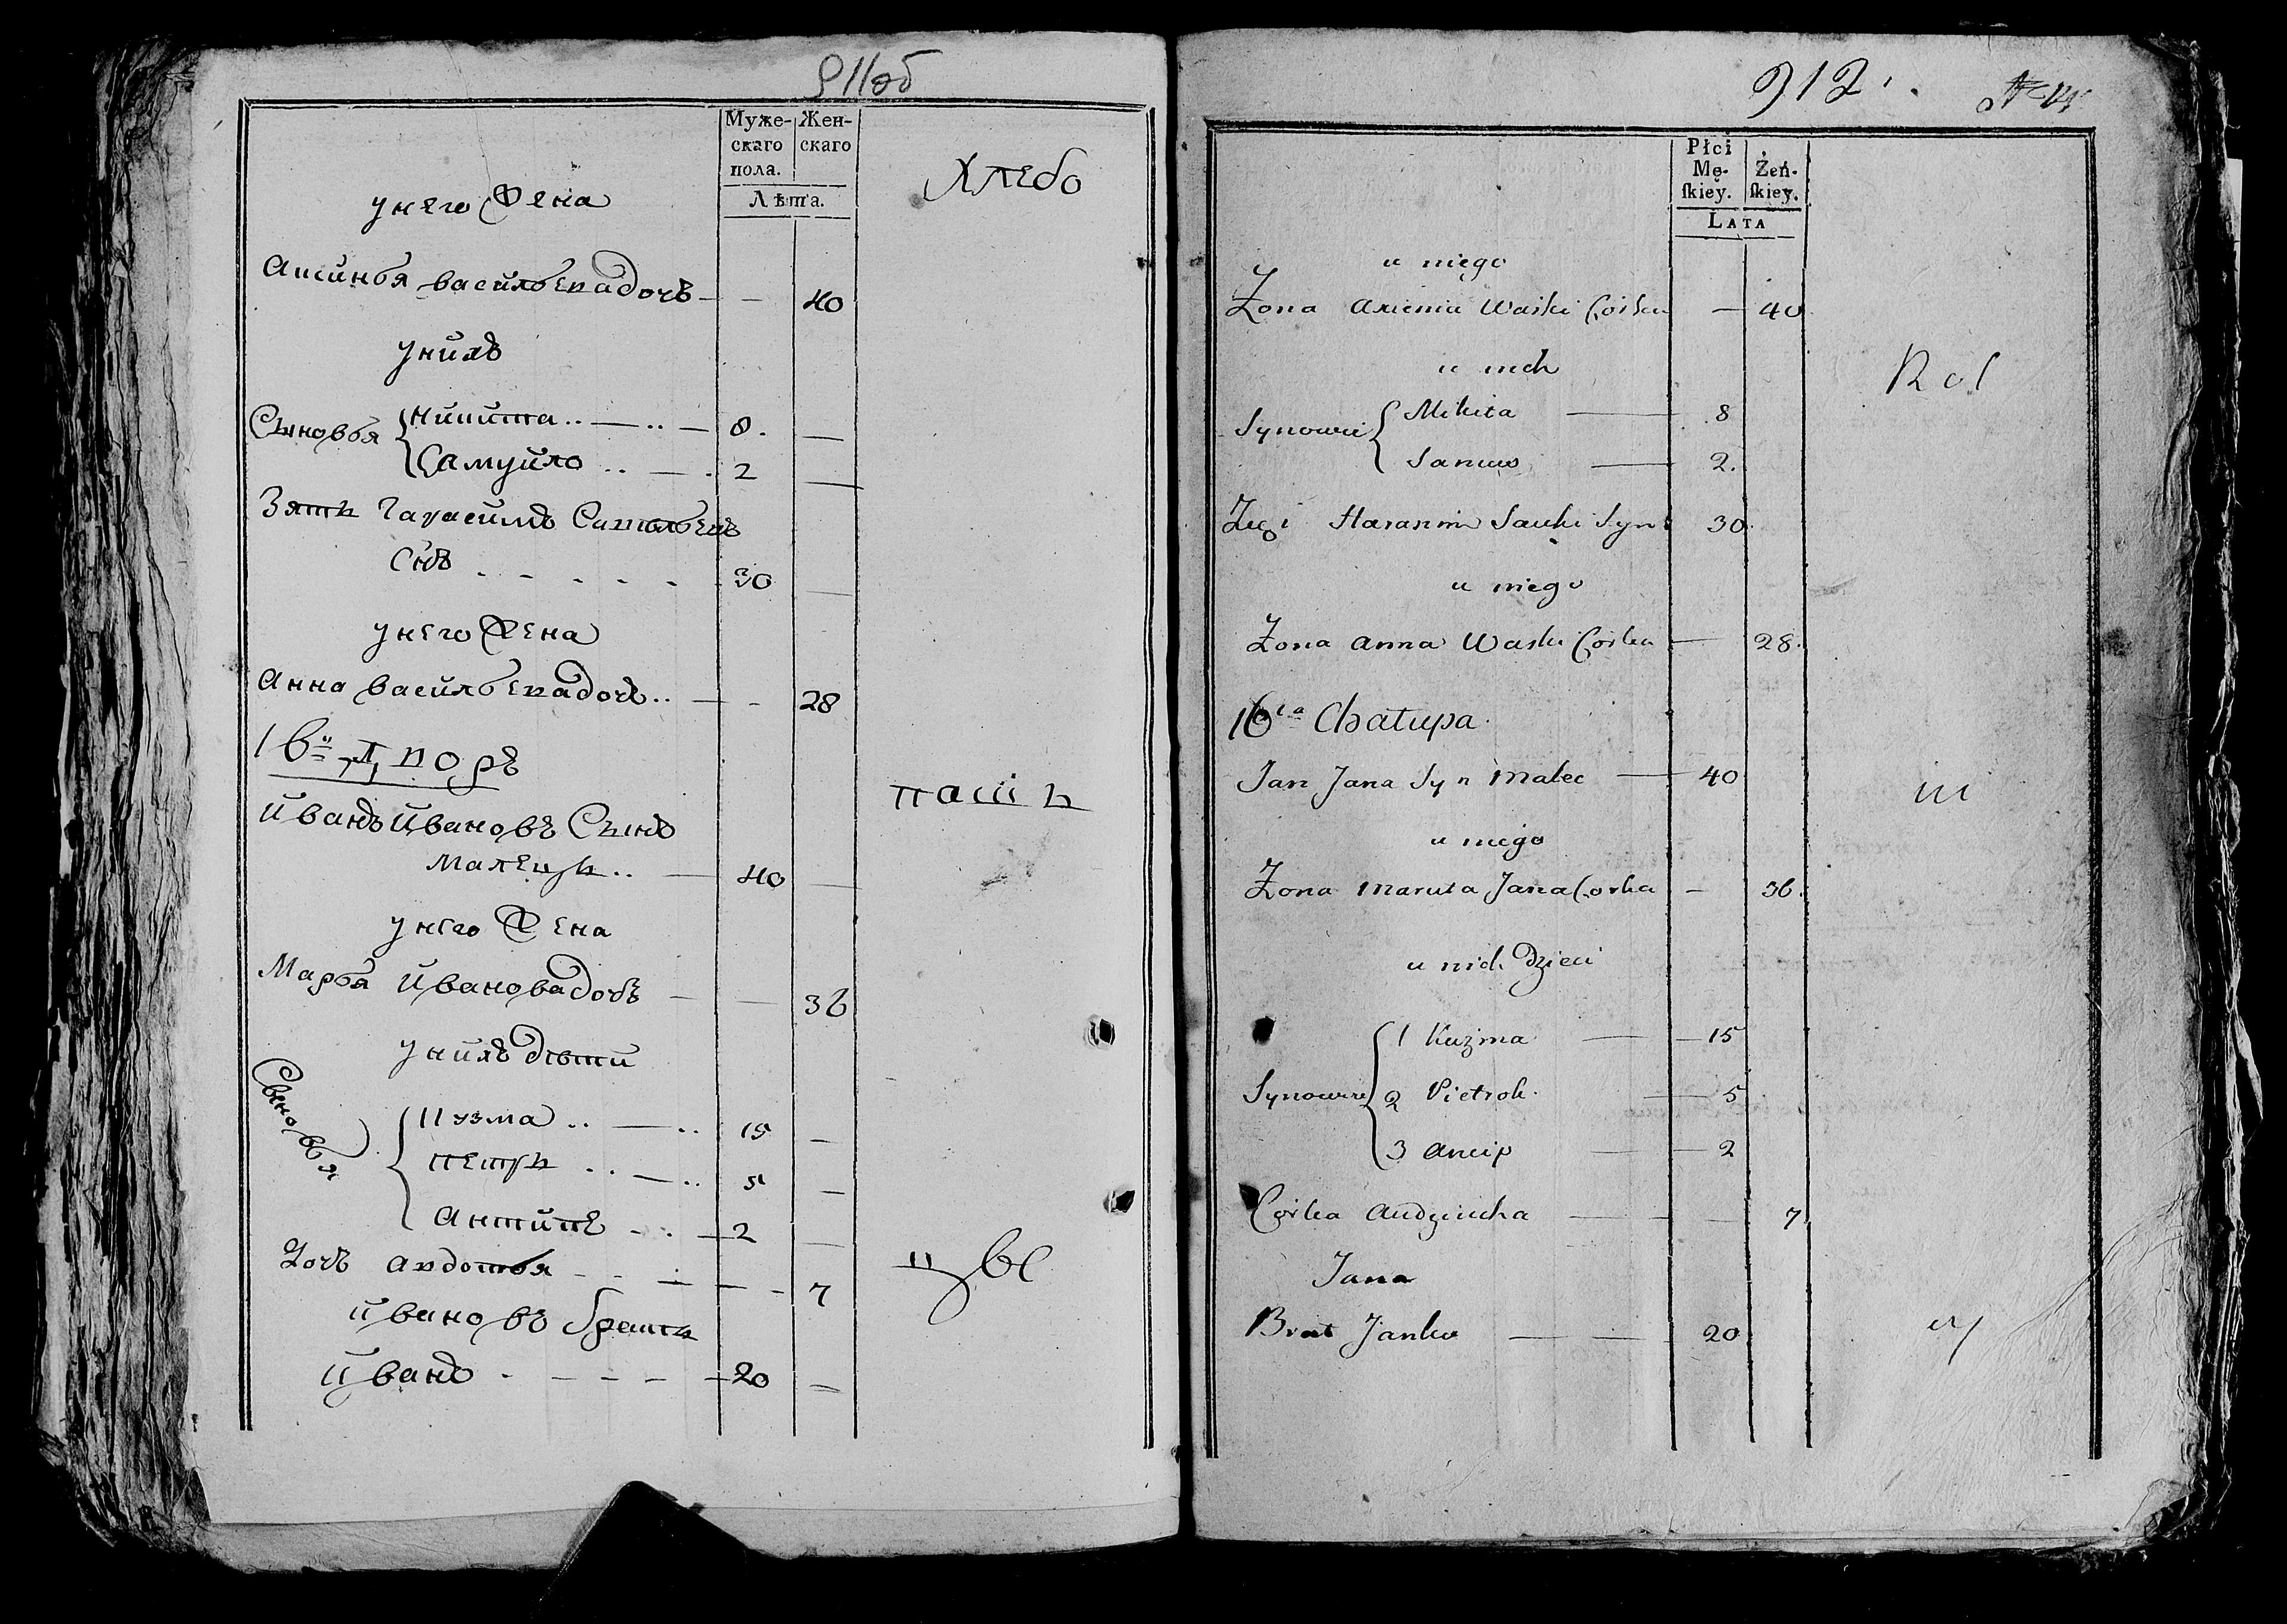 911об
Муже-
скаго
пола.
Жен-
скаго
Лѣта.
Хлебо
унего жена
Аксинья васильевадочь - - 40
унихъ
Сыновья
Никита .. — .. — 8. —
Самуйло .. — . 2 —
Зять Гарасимъ
Снъ - - - - - 30 —
унего жена
Анна васильевадочь .. — - 28
16й дворъ
пашъ
Иванъ Ивановъ Сынъ
Малецъ .. — 40 —
унего жена
Марья Ивановадочь - — 36
унихъ дѣти
Сыновья
Кузма .. — .. 15 —
петръ .. — .. 5 —
Антипъ - . — 2 —
Дочь Авдотья - - — - 7
цы
Ивановъ братъ
Иванъ - - - - - 20 —
912.
№ 14
Płci
Mę-
ſkiey.
Żeń-
ſkiey.
Lata
u niego
Żona Axienia Waśki Corka — 40
u nich
Rol
Synowie
Mikita — 8
— 2.
Zięć Harasim Sawki Syn 30.
u niego
Żona Anna Waśki Corka — 28.
16ta Chałupa.
Jan Jana Syn Malec — 40
ni
u niego
Żona Maruta Jana Corka — 36.
u nich Dzieci
Synowie
1 Kuzma — 15
2 Pietrok. — 5
3 Ancip — 2
Corka Audziucha — — 7
Jana
Brat Janko — — 20
cy